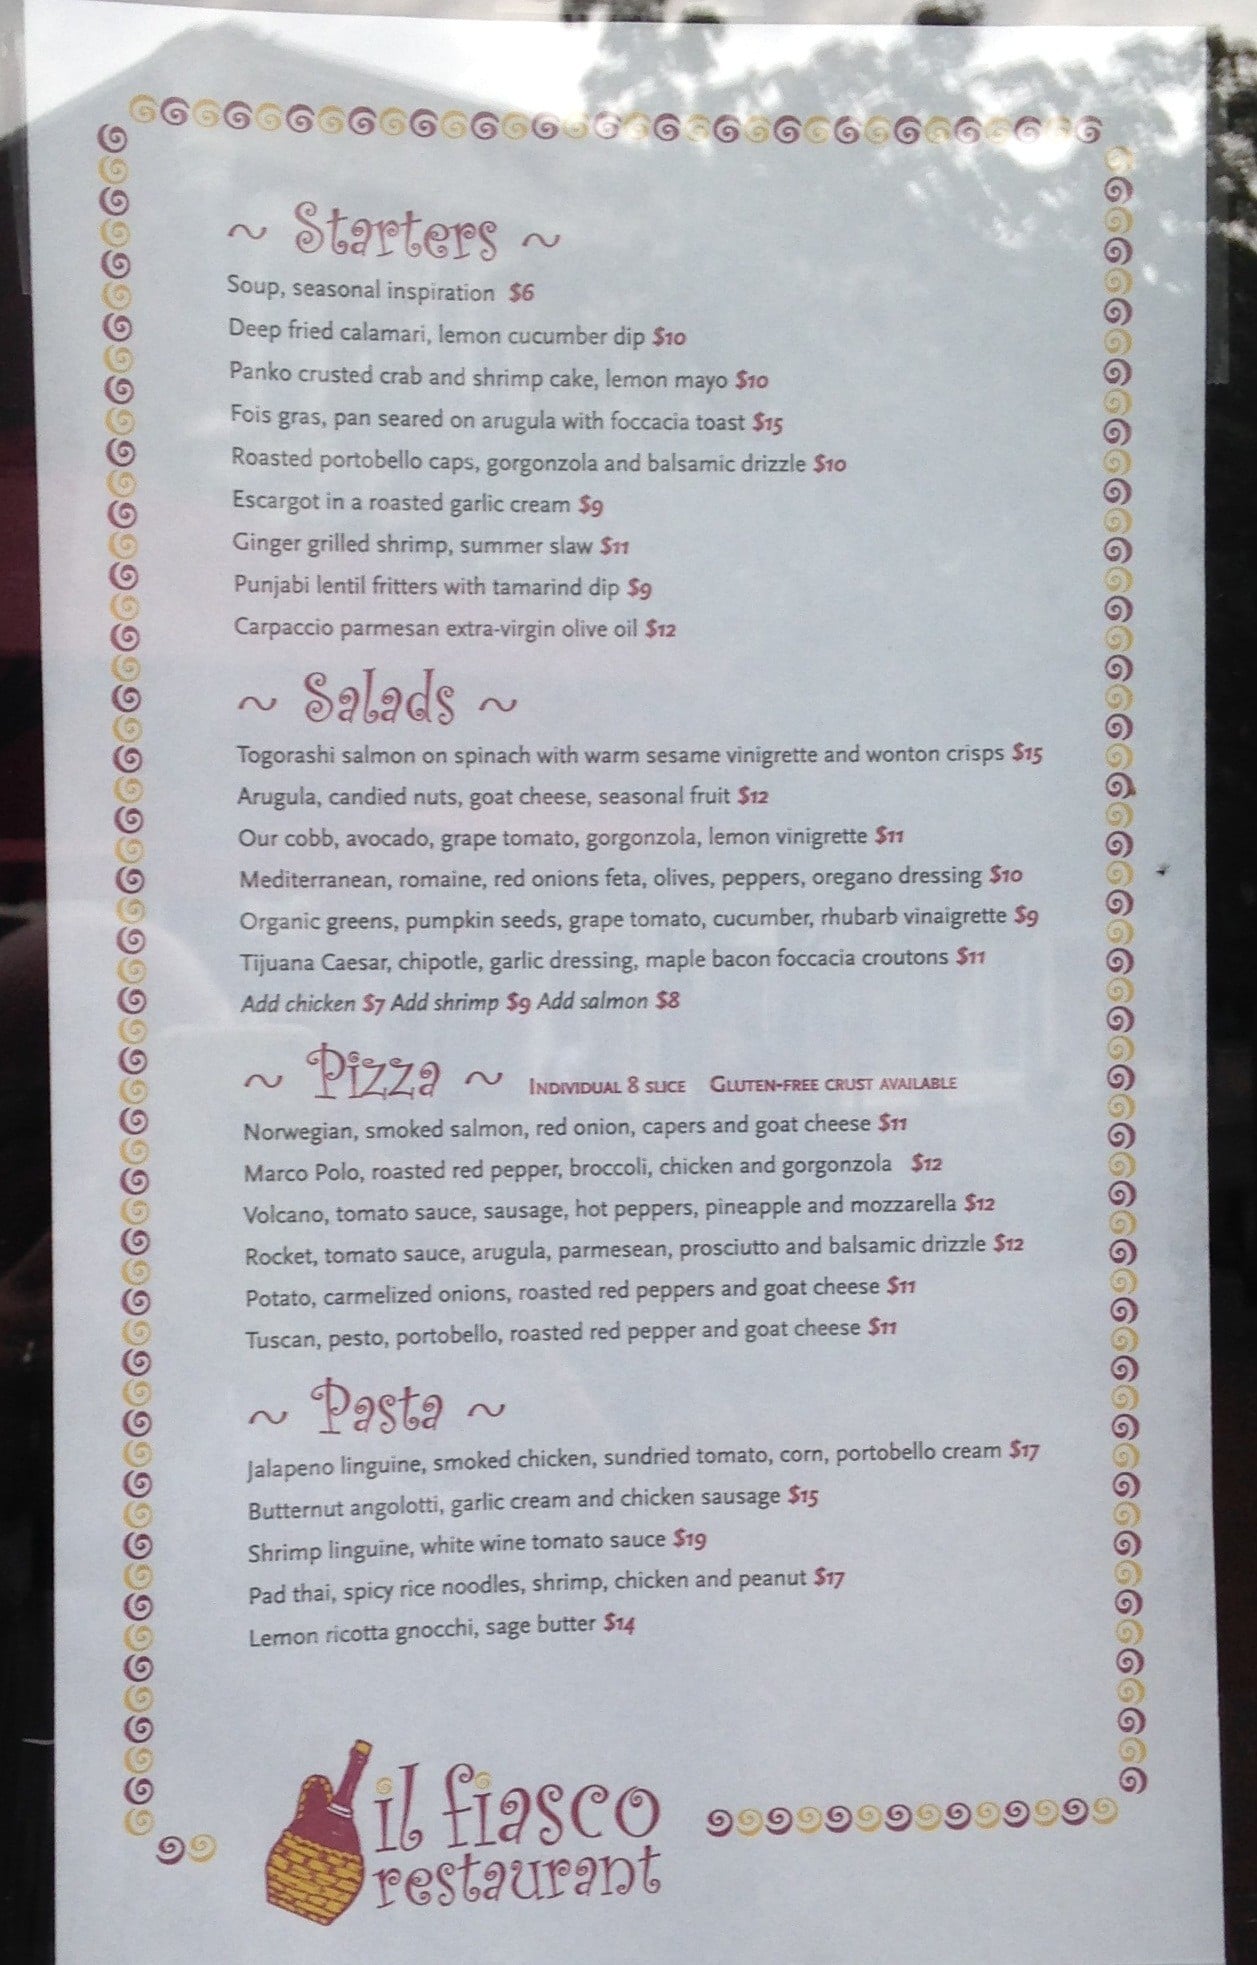 ~ Starters ~
Soup, seasonal inspiration $6
Deep fried calamari, lemon cucumber dip $10
Panko crusted crab and shrimp cake, lemon mayo $10
Fois gras, pan seared on arugula with foccacia toast $15
Roasted portobello caps, gorgonzola and balsamic drizzle $10
Escargot in a roasted garlic cream $9
Ginger grilled shrimp, summer slaw $11
Punjabi lentil fritters with tamarind dip $9
Carpaccio parmesan extra-virgin olive oil $12
~ Salads ~
Togorashi salmon on spinach with warm sesame vinigrette and wonton crisps $15
Arugula, candied nuts, goat cheese, seasonal fruit $12
Our cobb, avocado, grape tomato, gorgonzola, lemon vinigrette $11
Mediterranean, romaine, red onions feta, olives, peppers, oregano dressing $10
Organic greens, pumpkin seeds, grape tomato, cucumber, rhubarb vinaigrette $9
Tijuana Caesar, chipotle, garlic dressing, maple bacon foccacia croutons $11
Add chicken $7 Add shrimp $9 Add salmon $8
~ Pizza ~ INDIVIDUAL 8 SLICE GLUTEN-FREE CRUST AVAILABLE
Norwegian, smoked salmon, red onion, capers and goat cheese $11
Marco Polo, roasted red pepper, broccoli, chicken and gorgonzola $12
Volcano, tomato sauce, sausage, hot peppers, pineapple and mozzarella $12
Rocket, tomato sauce, arugula, parmesean, prosciutto and balsamic drizzle $12
Potato, carmelized onions, roasted red peppers and goat cheese $11
Tuscan, pesto, portobello, roasted red pepper and goat cheese $11
~ Pasta ~
Jalapeno linguine, smoked chicken, sundried tomato, corn, portobello cream $17
Butternut angolotti, garlic cream and chicken sausage $15
Shrimp linguine, white wine tomato sauce $19
Pad thai, spicy rice noodles, shrimp, chicken and peanut $17
Lemon ricotta gnocchi, sage butter $14
il fiasco
restaurant